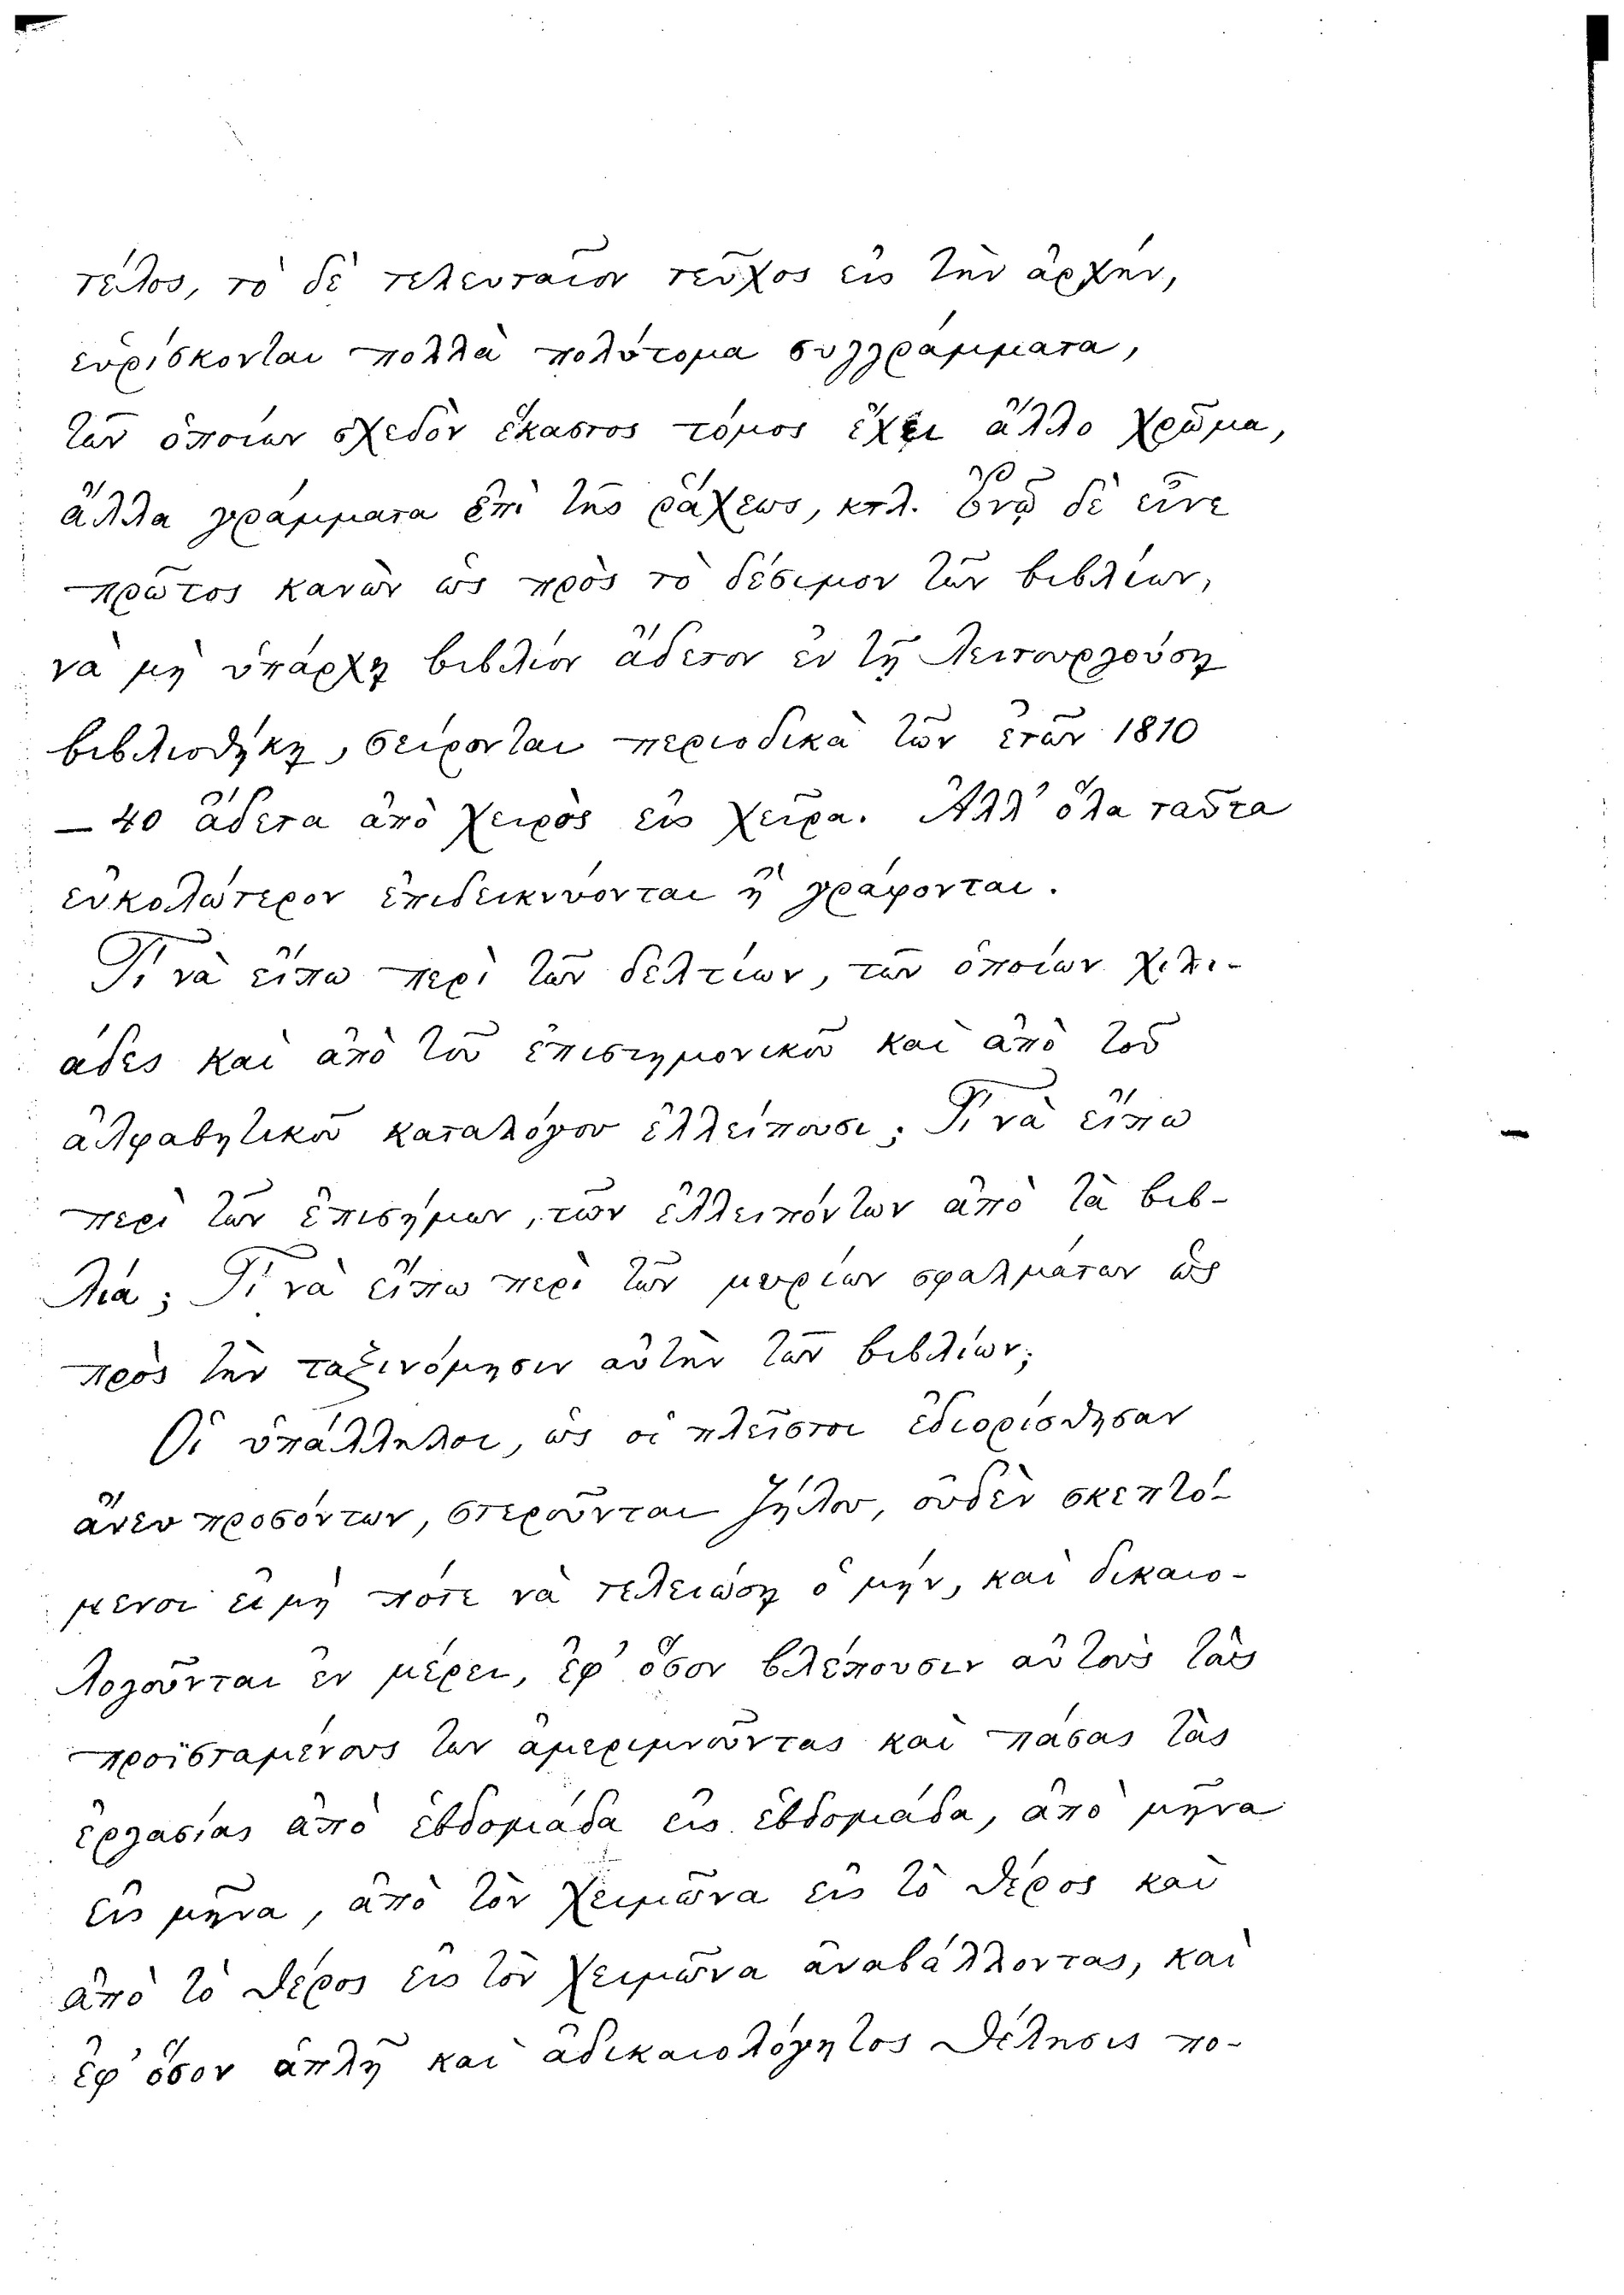 τέλος, τὸ δὲ τελευταῖον τεῦχος εἰς τὴν ἀρχήν,
εὑρίσκονται πολλὰ πολύτομα συγγράμματα,
τῶν ὁποίων σχεδὸν ἕκαστος τόμος ἔχει ἄλλο χρῶμα,
ἄλλα γράμματα ἐπὶ τῆς ῥάχεως, κτλ. Ἐνῷ δὲ εἶνε
πρῶτος κανὼν ὡς πρὸς τὸ δέσιμον τῶν βιβλίων,
νὰ μὴ ὑπάρχῃ βιβλίον ἄδετον ἐν τῇ λειτουργούσῃ
βιβλιοθήκῃ, σύρονται περιοδικὰ τῶν ἐτῶν 1810
—40 ἄδετα ἀπὸ χειρὸς εἰς χεῖρα. Ἀλλ' ὅλα ταῦτα
εὐκολώτερον ἐπιδεικνύονται ἢ γράφονται.
Τί νὰ εἴπω περὶ τῶν δελτίων, τῶν ὁποίων χιλι-
άδες καὶ ἀπὸ τοῦ ἐπιστημονικοῦ καὶ ἀπὸ τοῦ
ἀλφαβητικοῦ καταλόγου ἐλλείπουσι; Τί νὰ εἴπω
περὶ τῶν ἐπισήμων, τῶν ἐλλειπόντων ἀπὸ τὰ βιβ-
λία; Τί νὰ εἴπω περὶ τῶν μυρίων σφαλμάτων ὡς
πρὸς τὴν ταξινόμησιν αὐτὴν τῶν βιβλίων;
Οἱ ὑπάλληλοι, ὡς οἱ πλεῖστοι ἐδιορίσθησαν
ἄνευ προσόντων, στεροῦνται ζήλου, οὐδὲν σκεπτό-
μενοι εἰ μὴ πότε νὰ τελειώσῃ ὁ μήν, καὶ δικαιο-
λογοῦνται ἐν μέρει, ἐφ' ὅσον βλέπουσιν αὐτοὺς τοὺς
προϊσταμένους των ἀμεριμνοῦντας καὶ πάσας τὰς
ἐργασίας ἀπὸ ἑβδομάδα εἰς ἑβδομάδα, ἀπὸ μῆνα
εἰς μῆνα, ἀπὸ τὸν χειμῶνα εἰς τὸ θέρος καὶ
ἀπὸ τὸ θέρος εἰς τὸν χειμῶνα ἀναβάλλοντας, καὶ
ἐφ' ὅσον ἁπλῆ καὶ ἀδικαιολόγητος θέλησις πο-